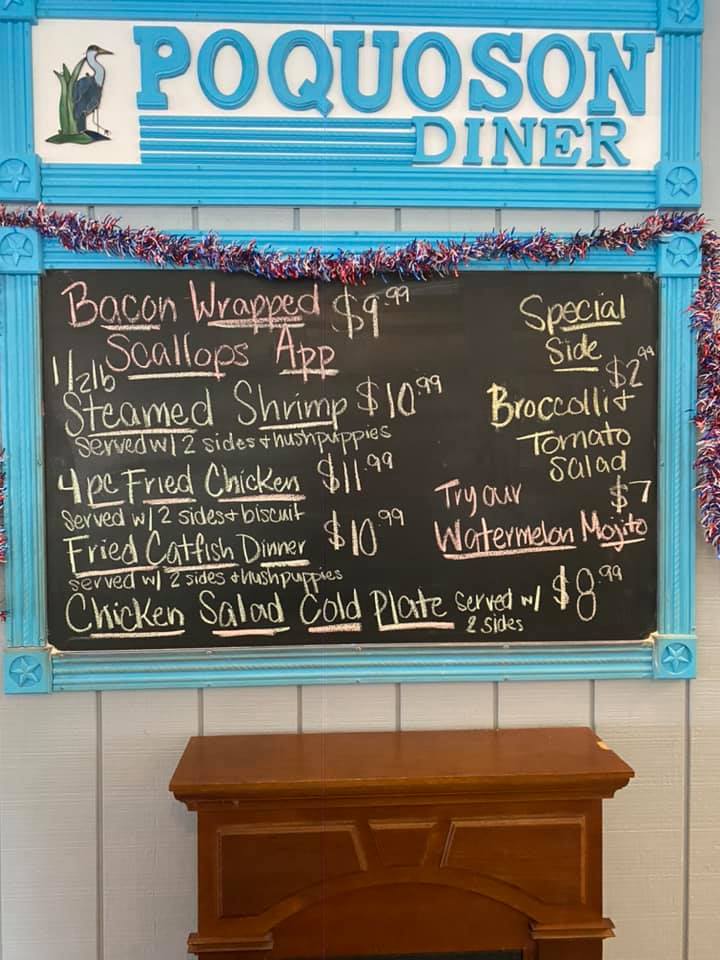 POQUOSON
DINER
Bacon Wrapped $9.99
Scallops App
1/2lb
Steamed Shrimp $10.99
served w/ 2 sides + hushpuppies
4 pc Fried Chicken $11.99
Served w/ 2 sides + biscuit
Fried Catfish Dinner $10.99
served w/ 2 sides + hushpuppies
Chicken Salad Cold Plate served w/ $8.99
2 sides
Special
Side
$2.99
Broccolli +
Tomato
Salad
Try our $7
Watermelon Mojito